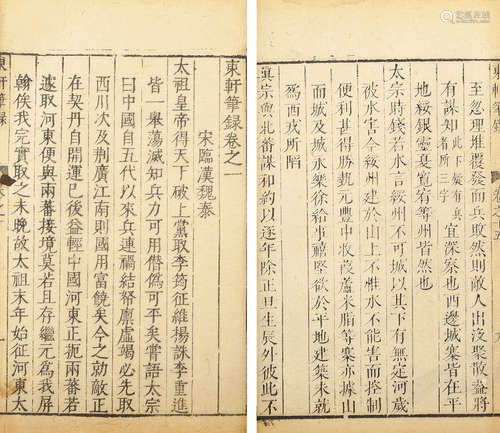 東軒筆錄卷之一
宋臨漢魏泰
太祖皇帝得天下破上黨取李均征維揚誅李重進
皆一舉蕩滅知兵力可用僭偽可平矣嘗語太宗
曰中國自五代以來兵連禍結帑廩虛竭必先取
西川次及荊廣江南則國用富饒矣今之勍敵正
在契丹自開運巳後益輕中國河東正扼兩蕃若
遽取河東便與兩蕃接境莫若且存繼元為我屏
翰俟我完實取之未晚故太祖末年始征河東太
東軒筆錄
覆發而兵敗然人出沒聚散益將
有謀知此下疑有兵者所三字宜深察也西邊城寨皆在平
地綏銀靈夏寬宥等州皆然也
太宗時錢若水言綏州不可城以其下有無定河歲
被水害今綏州建於山上不惟水不能害而控制
便利甚得勝埶元豐中收葭蘆米脂等寨亦據山
而城及城永樂徐給事禧堅欲於平地建築未就
為西戎所陷
真宗與北番謀和約以逐年除正旦生辰外彼此不